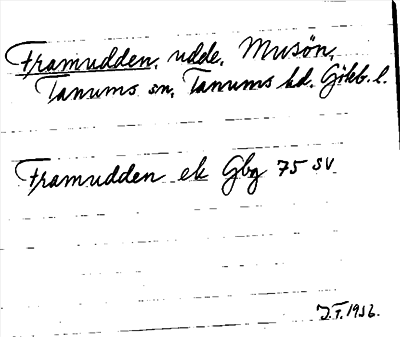 Framudden, udde, Musön,
Tanums sn, Tanums hd. Gbkb. l.
Framudden ek Gbg 75 SV
J.F. 1936.